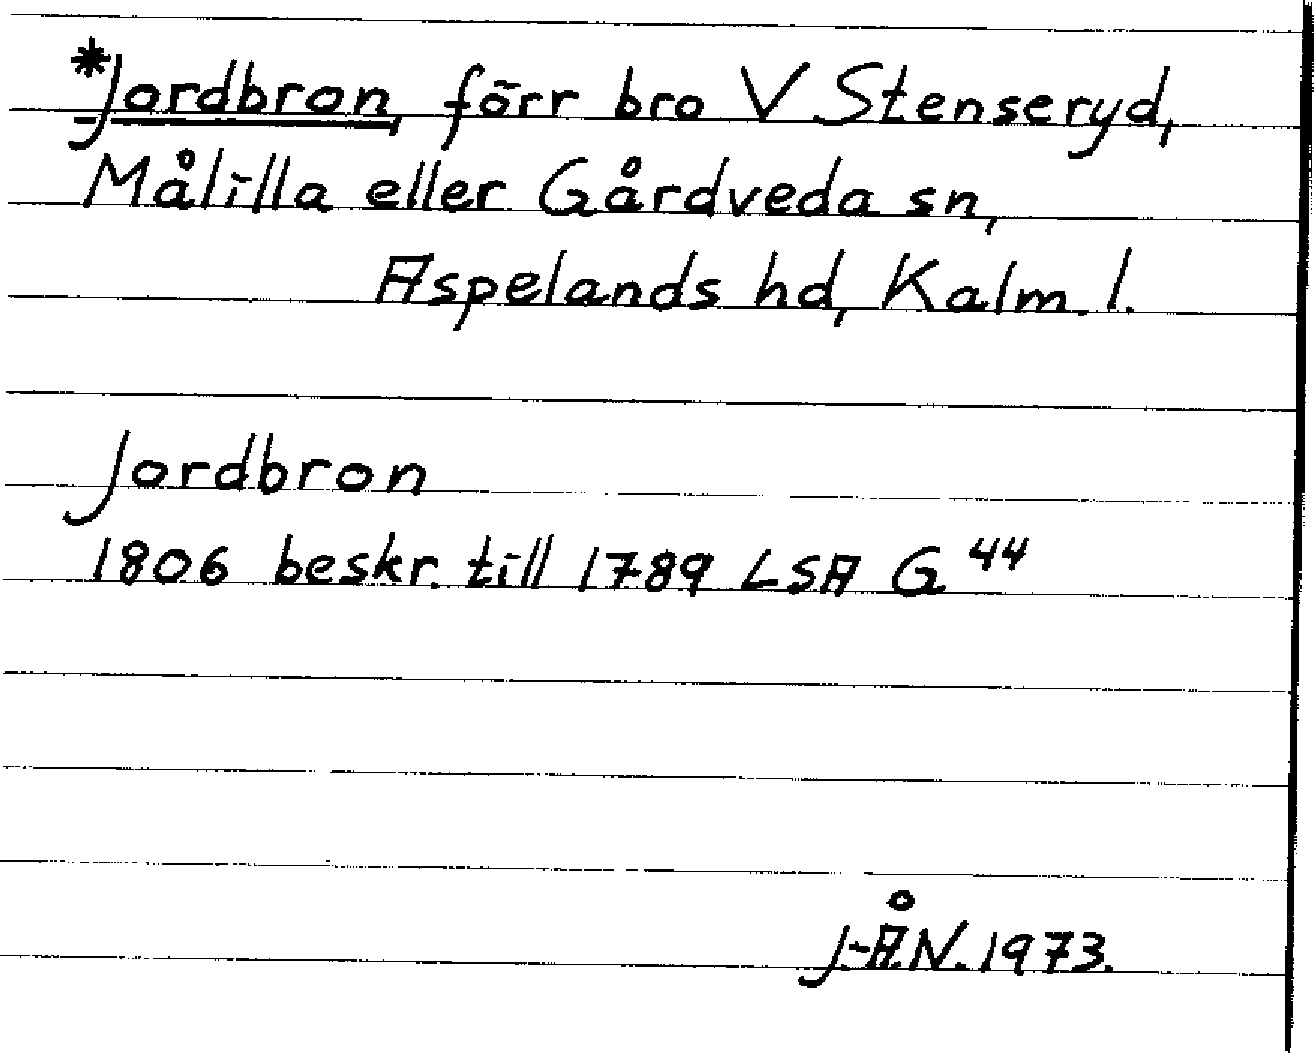 *Jordbron, förr bro V Stenseryd,
Målilla eller Gårdveda sn,
Aspelands hd, Kalm. l.
Jordbron
1806 beskr. till 1789 LSA G 44
J.-Å.N. 1973.